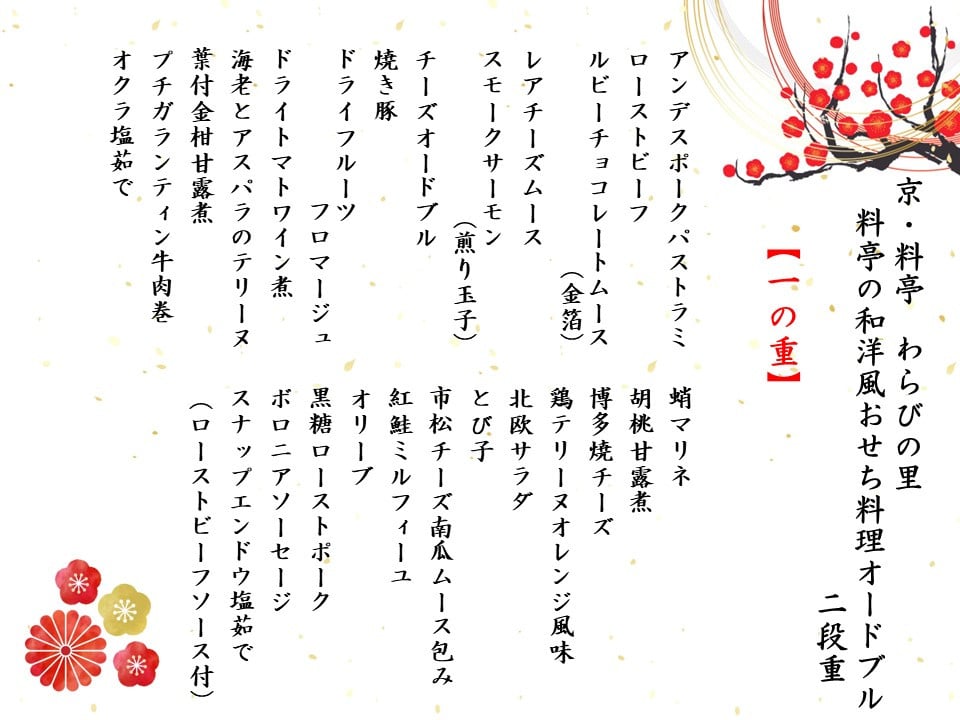 京・料亭　わらびの里
料亭の和洋風おせち料理オードブル
二段重
【一の重】
アンデスポークパストラミ
ローストビーフ
ルビーチョコレートムース
（金箔）
レアチーズムース
スモークサーモン
（煎り玉子）
チーズオードブル
焼き豚
ドライフルーツ
フロマージュ
ドライトマトワイン煮
海老とアスパラのテリーヌ
葉付金柑甘露煮
プチガランティン牛肉巻
オクラ塩茹で
蛸マリネ
胡桃甘露煮
博多焼チーズ
鶏テリーヌオレンジ風味
北欧サラダ
とび子
市松チーズ南瓜ムース包み
紅鮭ミルフィーユ
オリーブ
黒糖ローストポーク
ボロニアソーセージ
スナップエンドウ塩茹で
（ローストビーフソース付）